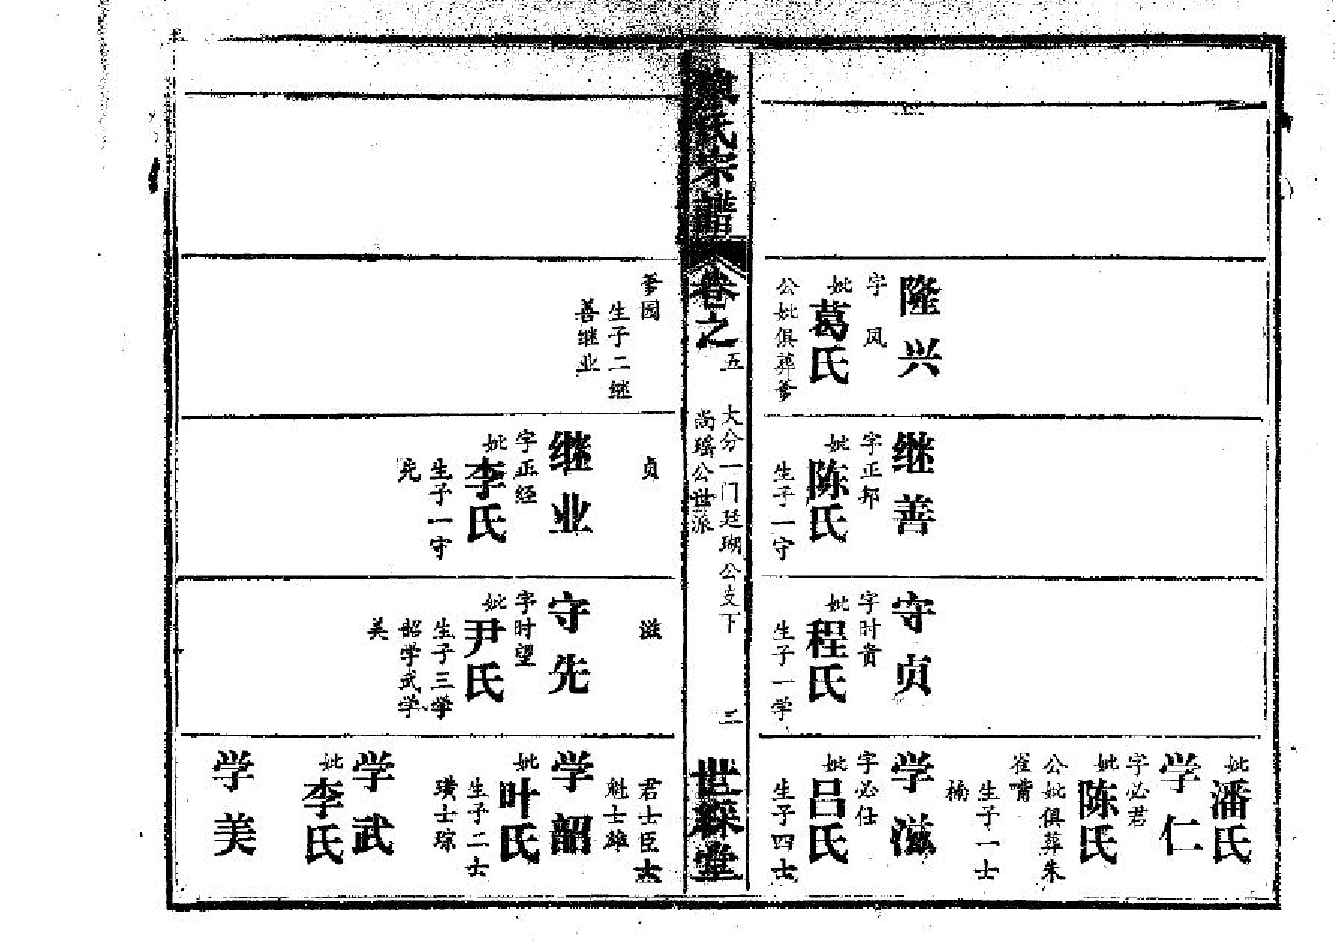 隆兴
字 凤
妣葛氏
公妣俱葬爹
继善
字正邦
妣陈氏
生子一守
守贞
字时贵
妣程氏
生子一学
妣潘氏
学仁
字必君
妣陈氏
公妣俱葬朱
雀嘴
生子一士
楠
学滋
字必仕
妣吕氏
生子四士
氏宗譜
卷之五
大分一门廷瑚公支下
尚瑶公世派
三
世綵堂
爹园
生子二继
善继业
贞
继业
字正经
妣李氏
生子一守
先
滋
守先
字时望
妣尹氏
生子三学
韶学武学
美
君士臣士
魁士雄
学韶
妣叶氏
生子二士
璜士琮
学武
妣李氏
学美